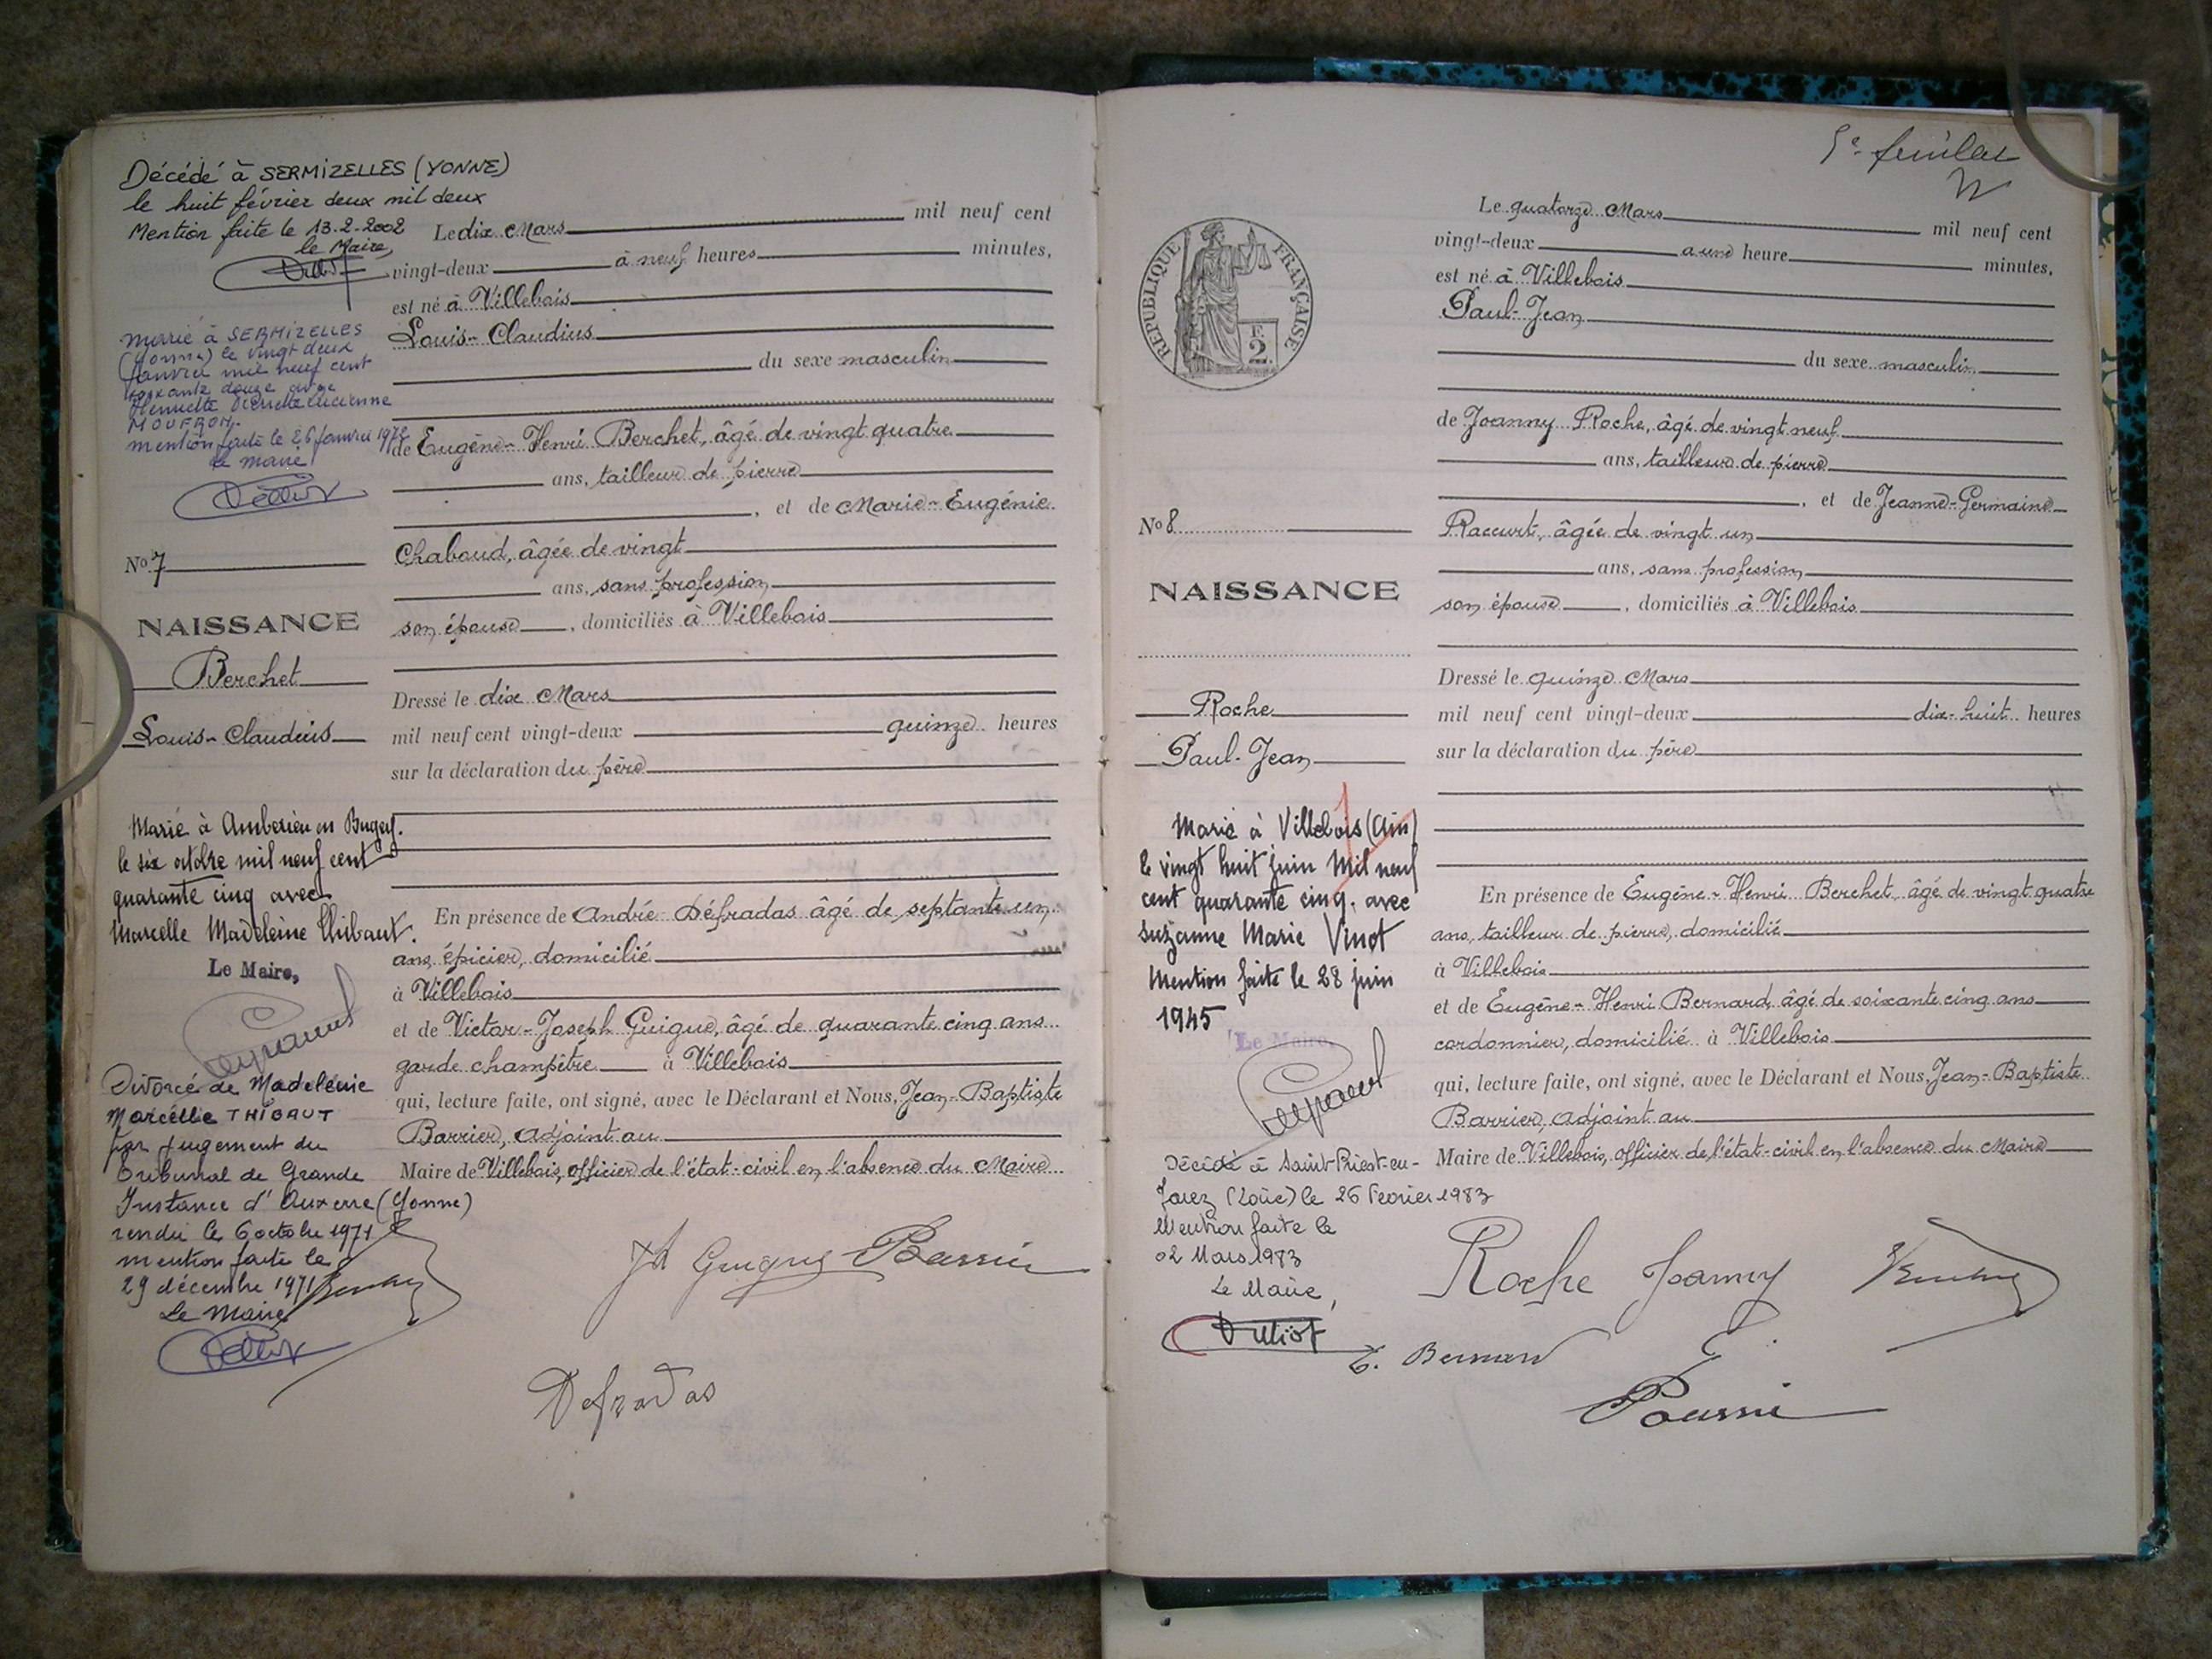 Décédé à SERMIZELLES (YONNE)
le huit février deux mil deux
Mention faite le 13-2-2002
le Maire,
marié à SERMIZELLES
(Yonne) le vingt deux
Janvier mil neuf cent
soixante douze avec
Henriette Pierrette Lucienne
mention faite le 26 Janvier 1972
le maire
No 7
NAISSANCE
Berchet
Louis-Claudius
Marié à Ambérieu en Bugey.
le six octobre mil neuf cent
quarante cinq avec
Marcelle Madeleine Thibaut.
Le Maire,
Divorcé de Madeleine
Marcelle THIBAUT
par jugement du
Tribunal de Grande
Instance d'Auxerre (Yonne)
rendu le 6 octobre 1971
mention faite le
29 décembre 1971
Le Maire
Le dix Mars mil neuf cent
vingt-deux à neuf heures minutes,
est né à Villebois
Louis-Claudius
du sexe masculin
de Eugène-Henri Berchet, âgé de vingt quatre
ans, tailleur de pierre
, et de Marie-Eugénie
Chaboud, âgée de vingt
ans, sans profession
son épouse, domiciliés à Villebois
Dressé le dix Mars
mil neuf cent vingt-deux quinze heures
sur la déclaration du père
En présence de André Défradas âgé de septante un
ans, épicier, domicilié
à Villebois
et de Victor-Joseph Guigue, âgé de quarante cinq ans
garde champêtre à Villebois
qui, lecture faite, ont signé, avec le Déclarant et Nous, Jean-Baptiste
Barrier, adjoint au
Maire de Villebois, officier de l'état-civil en l'absence du Maire
Defradas
5e feuillet
REPUBLIQUE FRANÇAISE
F.
2
No 8
NAISSANCE
Roche
Paul-Jean
Marié à Villebois (Ain)
le vingt huit juin Mil neuf
cent quarante cinq. avec
Suzanne Marie Vinot
Mention faite le 28 juin
1945
Le Maire,
Décédé à Saint-Priest-en-
Jarez (Loire) le 26 Février 1983
Mention faite le
02 Mars 1983
Le Maire,
Le quatorze Mars mil neuf cent
vingt-deux à une heure minutes,
est né à Villebois
Paul-Jean
du sexe masculin
de Joanny Roche, âgé de vingt neuf
ans, tailleur de pierre
, et de Jeanne-Germaine
Raccurt, âgée de vingt un
ans, sans profession
son épouse, domiciliés à Villebois
Dressé le quinze Mars
mil neuf cent vingt-deux dix-huit heures
sur la déclaration du père
En présence de Eugène-Henri Berchet, âgé de vingt quatre
ans, tailleur de pierre, domicilié
à Villebois
et de Eugène-Henri Bernard, âgé de soixante cinq ans
cordonnier, domicilié à Villebois
qui, lecture faite, ont signé, avec le Déclarant et Nous, Jean-Baptiste
Barrier, adjoint au
Maire de Villebois, officier de l'état-civil en l'absence du Maire
Roche Joanny
E. Bernard